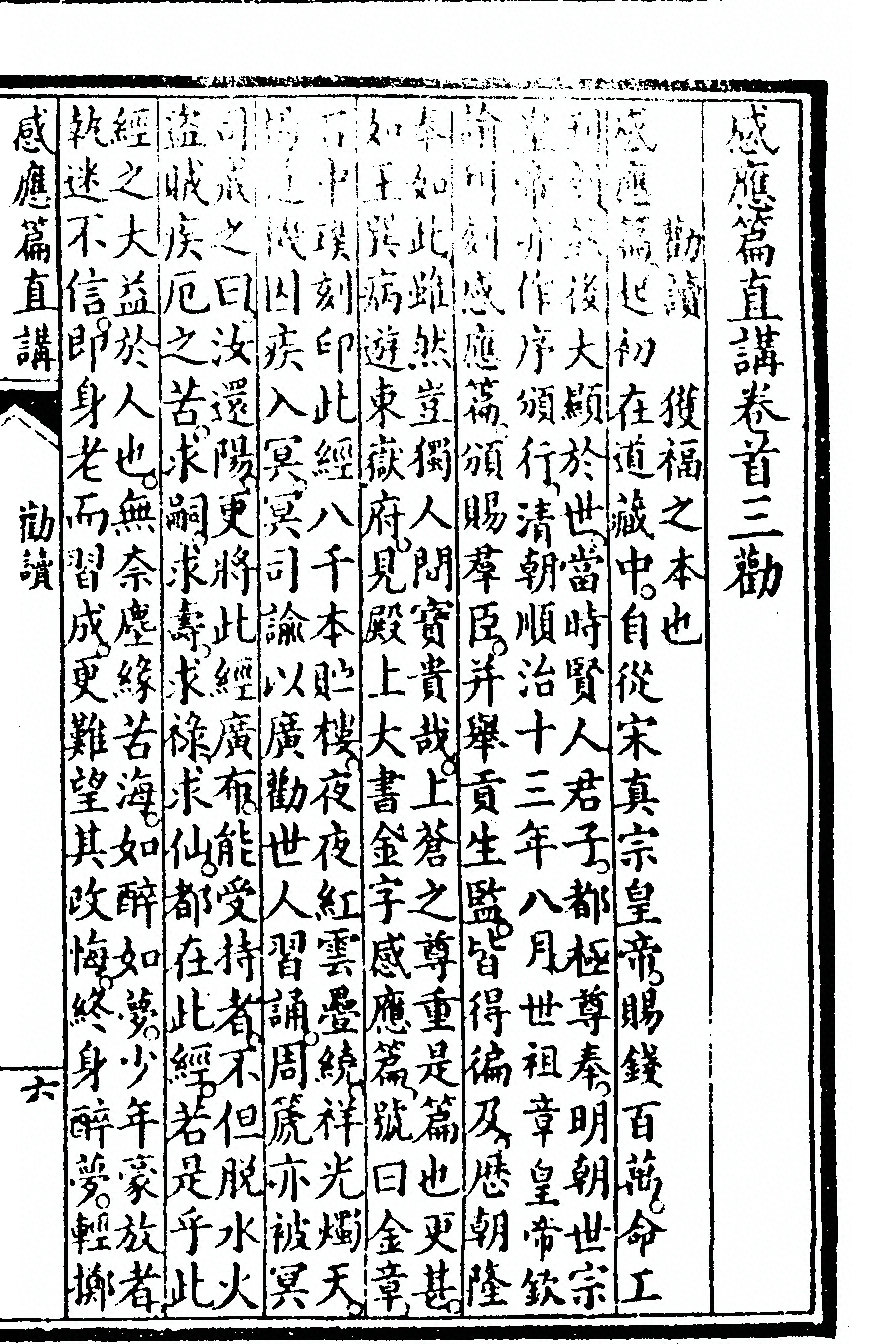 感應篇直講卷首三勸
勸讀　獲福之本也
感應篇、起初在道藏中。自從宋真宗皇帝。賜錢百萬。命工
刊刻後大顯於世、當時賢人君子。都極尊奉、明朝世宗
皇帝亦作序頒行、清朝順治十三年八月世祖章皇帝欽
諭刊刻感應篇、頒賜羣臣。并舉貢生監。皆得徧及、歷朝隆
奉如此、雖然豈獨人間寶貴哉。上蒼之尊重是篇也更甚。
如王巽病遊東嶽府。見殿上大書金字感應篇、號曰金章、
石中璞刻印此經八千本貯樓、夜夜紅雲疊繞、祥光燭天。
因疾入冥、冥司諭以廣勸世人習誦。周篪亦被冥
司戒之曰、汝還陽、更將此經廣布。能受持者、不但脫水火
盜賊疾厄之苦。求嗣、求壽、求祿、求仙。都在此經。若是乎此
經之大益於人也。無奈塵緣苦海。如醉如夢。少年豪放者、
執迷不信。即身老而習成、更難望其改悔。終身醉夢。輕擲
感應篇直講　勸讀　六